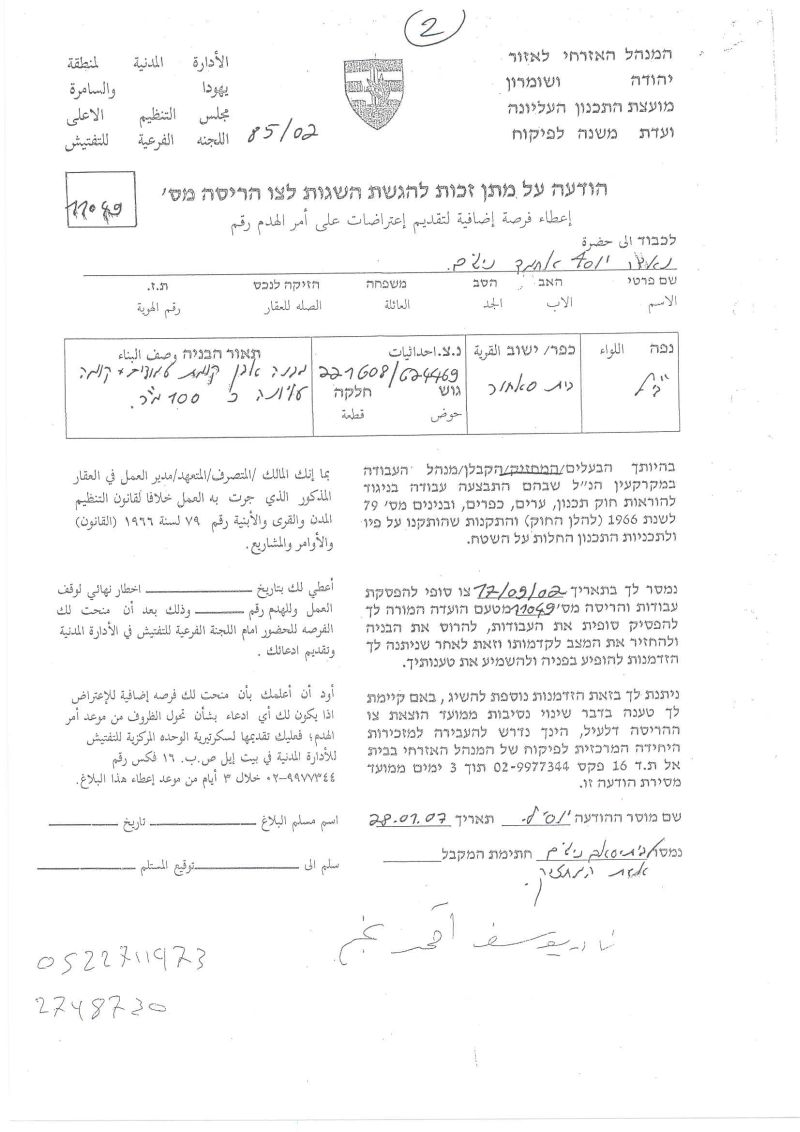 2
המנהל האזרחי לאזור
יהודה ושומרון
מועצת התכנון העליונה
ועדת משנה לפיקוח
الأدارة المدنية لمنطقة
يهودا والسامرة
مجلس التنظيم الاعلى
اللجنه الفرعية للتفتيش
85/02
הודעה על מתן זכות להגשת השגות לצו הריסה מס'
11049
إعطاء فرصة إضافية لتقديم إعتراضات على أمر الهدم رقم
לכבוד الى حضرة
נאדר יוסף אחמד
שם פרטי האב הסב משפחה הזיקה לנכס ת.ז.
الاسم الاب الجد العائلة الصله للعقار رقم الهوية
נפה اللواء
בי"ל
כפר/ ישוב القرية
בית סאחור
נ.צ. احداثيات
221608/624469
גוש חלקה
حوض قطعة
תאור הבניה وصف البناء
מבנה אבן קומת עמודים + קומה
עליונה כ 100 מ"ר.
בהיותך הבעלים/המחזיק/הקבלן/מנהל העבודה
במקרקעין הנ"ל שבהם התבצעה עבודה בניגוד
להוראות חוק תכנון, ערים, כפרים, ובנינים מס' 79
לשנת 1966 (להלן החוק) והתקנות שהותקנו על פיו
ולתכניות התכנון החלות על השטח.
بما إنك المالك /المتصرف/المتعهد/مدير العمل في العقار
المذكور الذي جرت به العمل خلافا لقانون التنظيم
المدن والقرى والأبنية رقم ٧٩ لسنة ١٩٦٦ (القانون)
والأوامر والمشاريع.
נמסר לך בתאריך 17/09/02 צו סופי להפסקת
עבודות והריסה מס' 11049 מטעם הועדה המורה לך
להפסיק סופית את העבודות, להרוס את הבניה
ולהחזיר את המצב לקדמותו וזאת לאחר שניתנה לך
הזדמנות להופיע בפניה ולהשמיע את טענותיך.
أعطي لك بتاريخ اخطار نهائي لوقف
العمل وللهدم رقم وذلك بعد أن منحت لك
الفرصه للحضور امام اللجنة الفرعية للتفتيش في الأدارة المدنية
وتقديم ادعائك.
ניתנת לך בזאת הזדמנות נוספת להשיג, באם קיימת
לך טענה בדבר שינוי נסיבות ממועד הוצאת צו
ההריסה דלעיל, הינך נדרש להעבירה למזכירות
היחידה המרכזית לפיקוח של המנהל האזרחי בבית
אל ת.ד 16 פקס 02-9977344 תוך 3 ימים ממועד
מסירת הודעה זו.
أود أن أعلمك بأن منحت لك فرصه إضافية للإعتراض
اذا يكون لك أي ادعاء بشأن تحول الظروف من موعد أمر
الهدم؛ فعليك تقديمها لسكرتيرية الوحده المركزية للتفتيش
للأدارة المدنية في بيت إيل ص.ب. ١٦ فكس رقم
٠٢-٩٩٧٧٣٤٤ خلال ٣ أيام من موعد إعطاء هذا البلاغ.
שם מוסר ההודעה תאריך 28.01.07
اسم مسلم البلاغ تاريخ
חתימת המקבל
سلم الى توقيع المستلم
אשת המחזיק.
نادر يوسف احمد نجم
0522711973
2748730